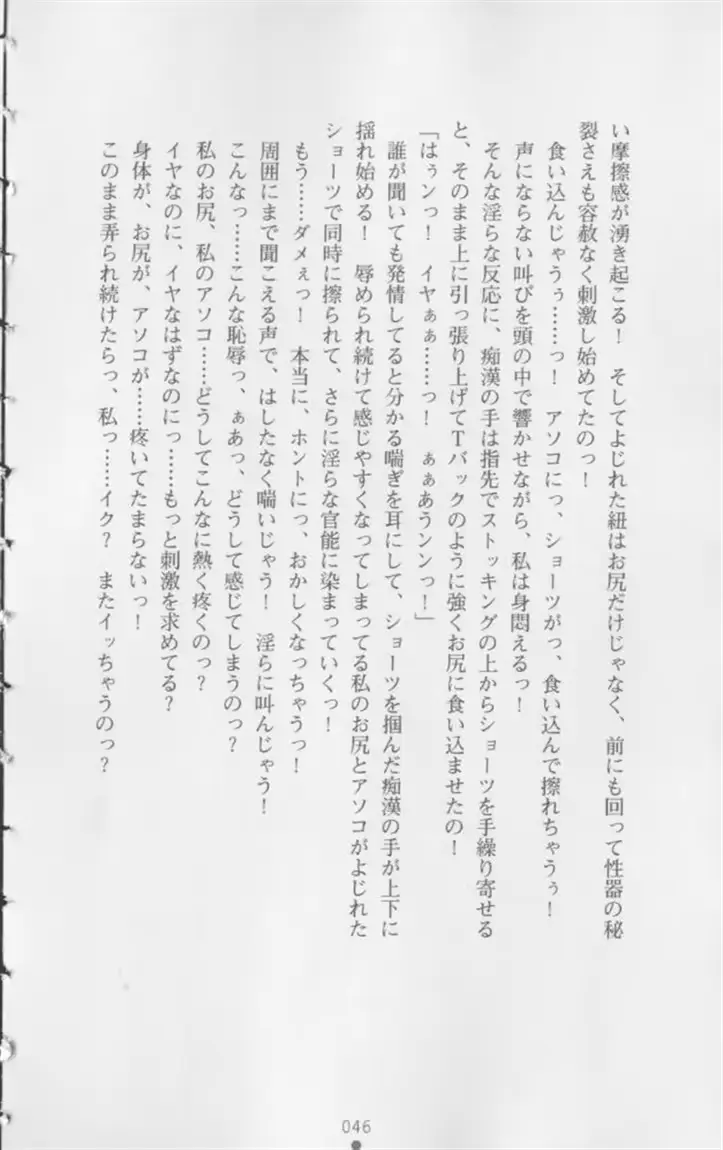 い摩擦感が湧き起こる！　そしてよじれた紐はお尻だけじゃなく、前にも回って性器の秘
裂さえも容赦なく刺激し始めてたのっ！
食い込んじゃうぅ……っ！　アソコにっ、ショーツがっ、食い込んで擦れちゃうぅ！
声にならない叫びを頭の中で響かせながら、私は身悶えるっ！
そんな淫らな反応に、痴漢の手は指先でストッキングの上からショーツを手繰り寄せる
と、そのまま上に引っ張り上げてＴバックのように強くお尻に食い込ませたの！
「はぅンっ！　イヤぁぁ……っ！　ぁぁあうンンっ！」
誰が聞いても発情してると分かる喘ぎを耳にして、ショーツを掴んだ痴漢の手が上下に
揺れ始める！　辱められ続けて感じやすくなってしまってる私のお尻とアソコがよじれた
ショーツで同時に擦られて、さらに淫らな官能に染まっていくっ！
もう……ダメぇっ！　本当に、ホントにっ、おかしくなっちゃうっ！
周囲にまで聞こえる声で、はしたなく喘いじゃう！　淫らに叫んじゃう！
こんなっ……こんな恥辱っ、ぁあっ、どうして感じてしまうのっ？
私のお尻、私のアソコ……どうしてこんなに熱く疼くのっ？
イヤなのに、イヤなはずなのにっ……もっと刺激を求めてる？
身体が、お尻が、アソコが……疼いてたまらないっ！
このまま弄られ続けたらっ、私っ……イク？　またイッちゃうのっ？
046